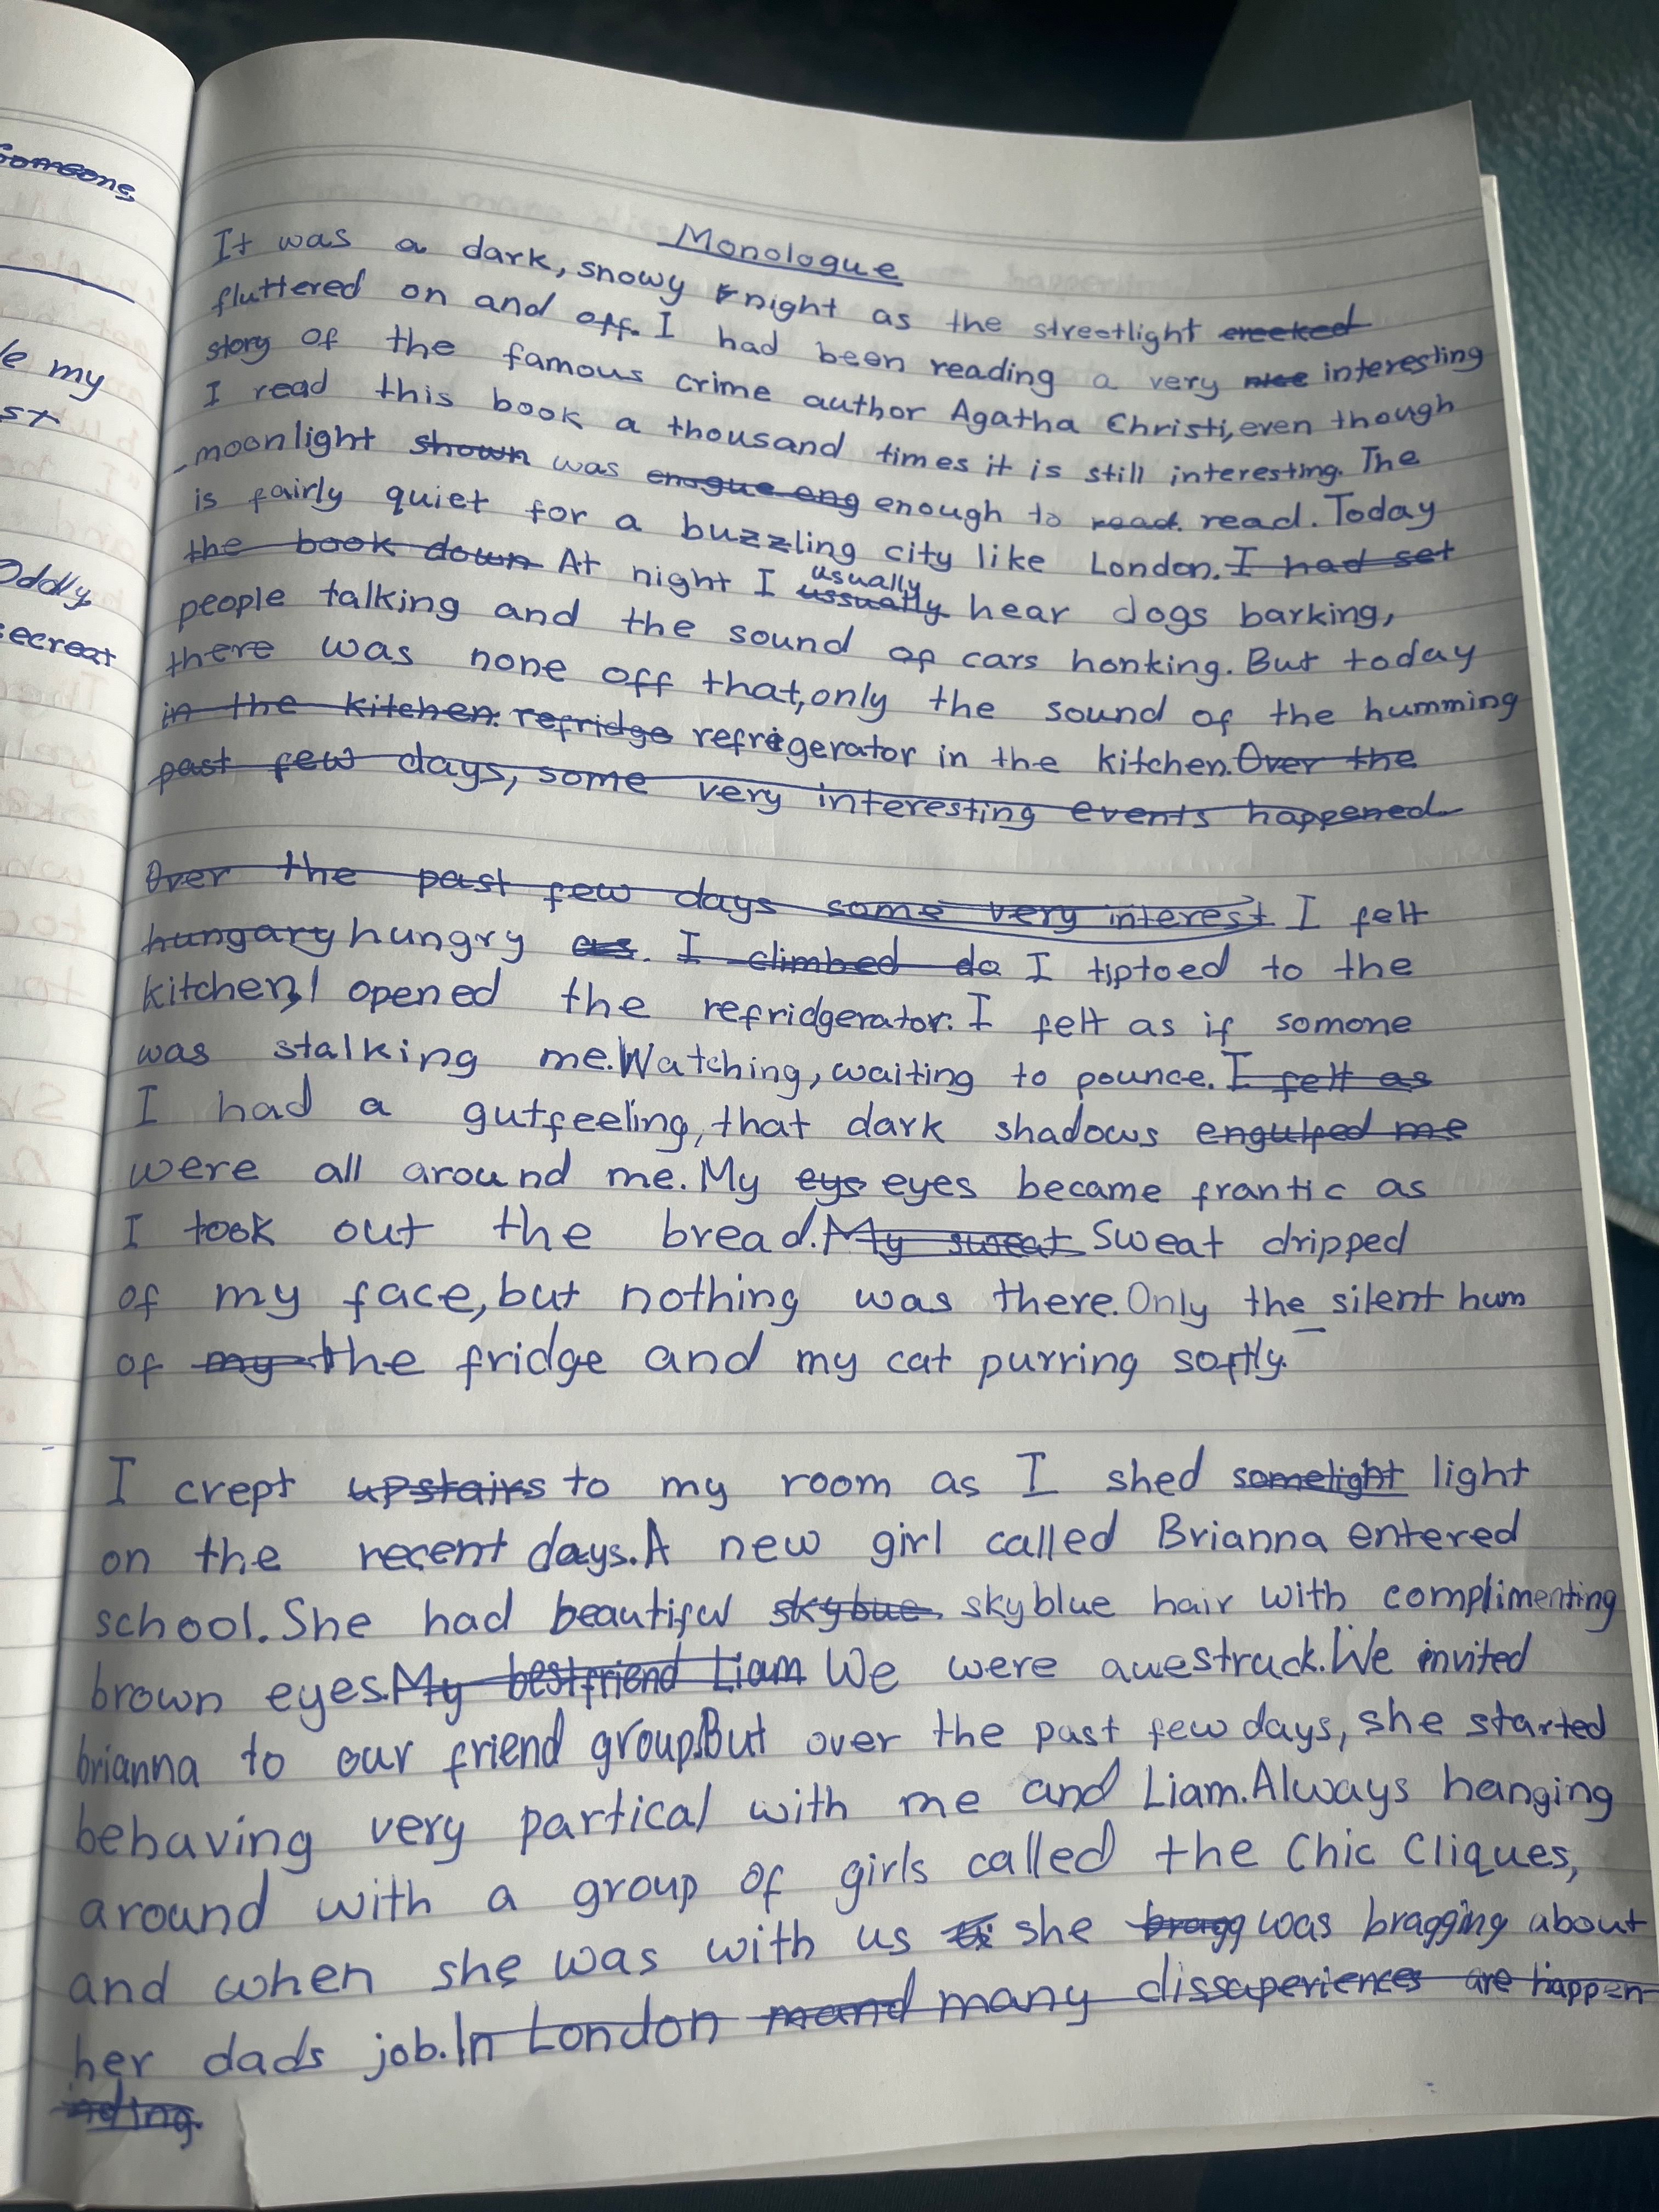 Someone
le my
st
Oddly
secreat
Monologue
It was a dark, snowy night as the streetlight creeked
fluttered on and off. I had been reading a very nice interesting
story of the famous crime author Agatha Christi, even though
I read this book a thousand times it is still interesting. The
moonlight shown was enogue eng enough to read. read. Today
is fairly quiet for a buzzling city like London. I had set
the book down At night I ussually usually hear dogs barking,
people talking and the sound of cars honking. But today
there was none off that, only the sound of the humming
in the kitchen. refridge refrigerator in the kitchen. Over the
past few days, some very interesting events happened.
Over the past few days some very interest I felt
hungary hungry as. I climbed do I tiptoed to the
kitchen, I opened the refridgerator. I felt as if somone
was stalking me. Watching, waiting to pounce. I felt as
I had a gutfeeling, that dark shadows engulped me
were all around me. My eys eyes became frantic as
I took out the bread. My sweat Sweat dripped
of my face, but nothing was there. Only the silent hum
of my the fridge and my cat purring softly.
I crept upstairs to my room as I shed somelight light
on the recent days. A new girl called Brianna entered
school. She had beautiful skybue skyblue hair with complimenting
brown eyes. My bestfriend Liam We were awestruck. We invited
brianna to our friend group. But over the past few days, she started
behaving very partical with me and Liam. Always hanging
around with a group of girls called the Chic Cliques,
and when she was with us she bragg was bragging about
her dads job. In London mand many dissaperiences are happen-
nding.